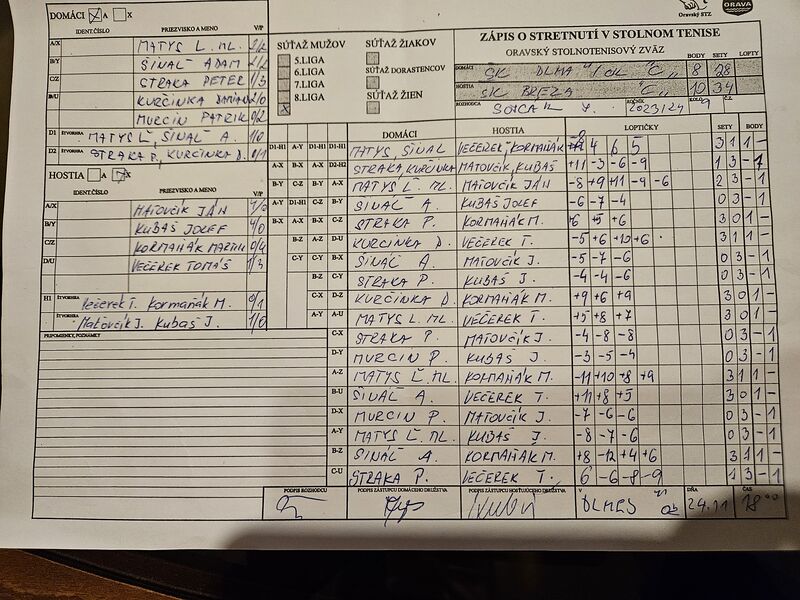 DOMÁCI A
IDENT.ČÍSLO PRIEZVISKO A MENO V/P
A/X MATYS Ľ. ML. 2/2
B/Y ŠINÁL ADAM 2/2
C/Z STRAKA PETER 1/3
B/U KURČINKA DAMIÁN 2/0
MURCIN PATRIK 0/2
D1 ŠTVORHRA MATYS Ľ, ŠINÁL A. 1/0
D2 ŠTVORHRA STRAKA P, KURČINKA D. 0/1
HOSTIA A
IDENT.ČÍSLO PRIEZVISKO A MENO V/P
A/X MAŤOVČÍK JÁN
B/Y KUBAŠ JOZEF 4/0
C/Z KORMAŇÁK MARTIN 0/4
D/U VEČEREK TOMÁŠ 1/3
H1 ŠTVORHRA Večerek T. Kormaňák M. 0/1
ŠTVORHRA Maťovčík J. Kubaš J. 1/0
PRIPOMIENKY, POZNÁMKY
SÚŤAŽ MUŽOV
5.LIGA
6.LIGA
7.LIGA
8.LIGA
SÚŤAŽ ŽIAKOV
SÚŤAŽ DORASTENCOV
SÚŤAŽ ŽIEN
Oravský STZ
ORAVA
ZÁPIS O STRETNUTÍ V STOLNOM TENISE
ORAVSKÝ STOLNOTENISOVÝ ZVÄZ
BODY SETY LOPTY
DOMÁCI "C" 8
HOSTIA ŠK BREZA "C" 10 34
ROZHODCA ROČNÍK 2023/24 KOLO 9 Č.Z.
DOMÁCI HOSTIA LOPTIČKY SETY BODY
D1-H1 A-Y D1-H1 D1-H1 MATYS, ŠINÁL VEČEREK, KORMAŇÁK 4 6 5 3 1 1 -
A-X B-X A-X D2-H2 STRAKA, KURČINKA MAŤOVČÍK, KUBAŠ +11 -3 -6 -9 1 3 - 1
B-Y C-Z B-Y A-X MATYS Ľ. ML. MAŤOVČÍK JÁN -8 +9 +11 -9 -6 2 3 - 1
A-Y D1-H1 C-Z B-Y ŠINÁL A. KUBAŠ JOZEF -6 -7 -4 0 3 - 1
B-X A-X B-X C-Z STRAKA P. KORMAŇÁK M. 6 +5 +6 3 0 1 -
B-Z A-Z D-U KURČINKA D. VEČEREK T. -5 +6 +10 +6 3 1 1 -
C-Y C-Y B-X ŠINÁL A. MAŤOVČÍK J. -5 -7 -6 0 3 - 1
B-Z C-Y STRAKA P. KUBAŠ J. -4 -4 -6 0 3 - 1
C-X D-Z KURČINKA D. KORMAŇÁK M. +9 +6 +9 3 0 1 -
A-Y A-U MATYS Ľ. ML. VEČEREK T. +5 +8 +7 3 0 1 -
C-X STRAKA P. MAŤOVČÍK J. -4 -8 -8 0 3 - 1
D-Y MURCIN P. KUBAŠ J. -3 -5 -4 0 3 - 1
A-Z MATYS Ľ. ML. KORMAŇÁK M. -11 +10 +8 +9 3 1 1 -
B-U ŠINÁL A. VEČEREK T. +11 +8 +5 3 0 1 -
D-X MURCIN P. MAŤOVČÍK J. -7 -6 -6 0 3 - 1
A-Y MATYS Ľ. ML. KUBAŠ J. -8 -7 -6 0 3 - 1
B-Z ŠINÁL A. KORMAŇÁK M. +8 -12 +4 +6 3 1 1 -
C-U STRAKA P. VEČEREK T. 6 -6 -8 -9 1 3 - 1
PODPIS ROZHODCU PODPIS ZÁSTUPCU DOMÁCEHO DRUŽSTVA PODPIS ZÁSTUPCU HOSŤUJÚCEHO DRUŽSTVA V DŇA 24.11 ČAS 18 00